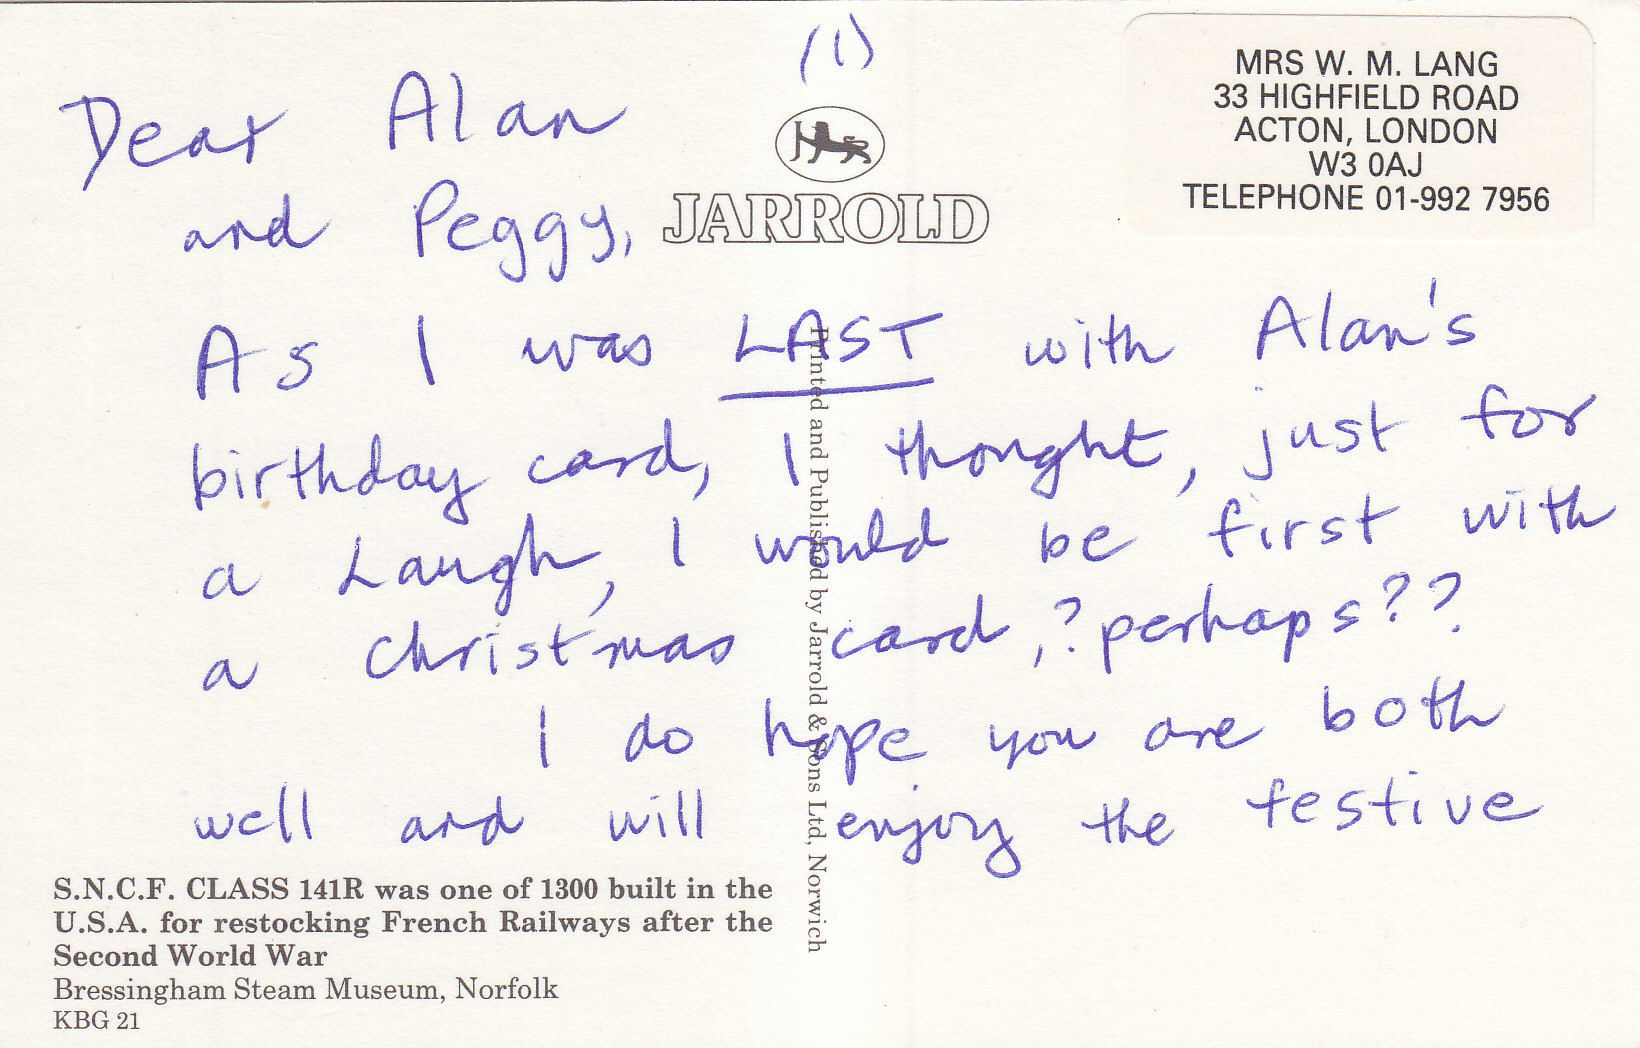 (1)
MRS W. M. LANG
33 HIGHFIELD ROAD
ACTON, LONDON
W3 0AJ
TELEPHONE 01-992 7956
JARROLD
Dear Alan
and Peggy,
As I was LAST with Alan's
birthday card, I thought, just for
a Laugh, I would be first with
a Christmas card,? perhaps??
I do hope you are both
well and will enjoy the festive
Printed and Published by Jarrold & Sons Ltd, Norwich
S.N.C.F. CLASS 141R was one of 1300 built in the
U.S.A. for restocking French Railways after the
Second World War
Bressingham Steam Museum, Norfolk
KBG 21